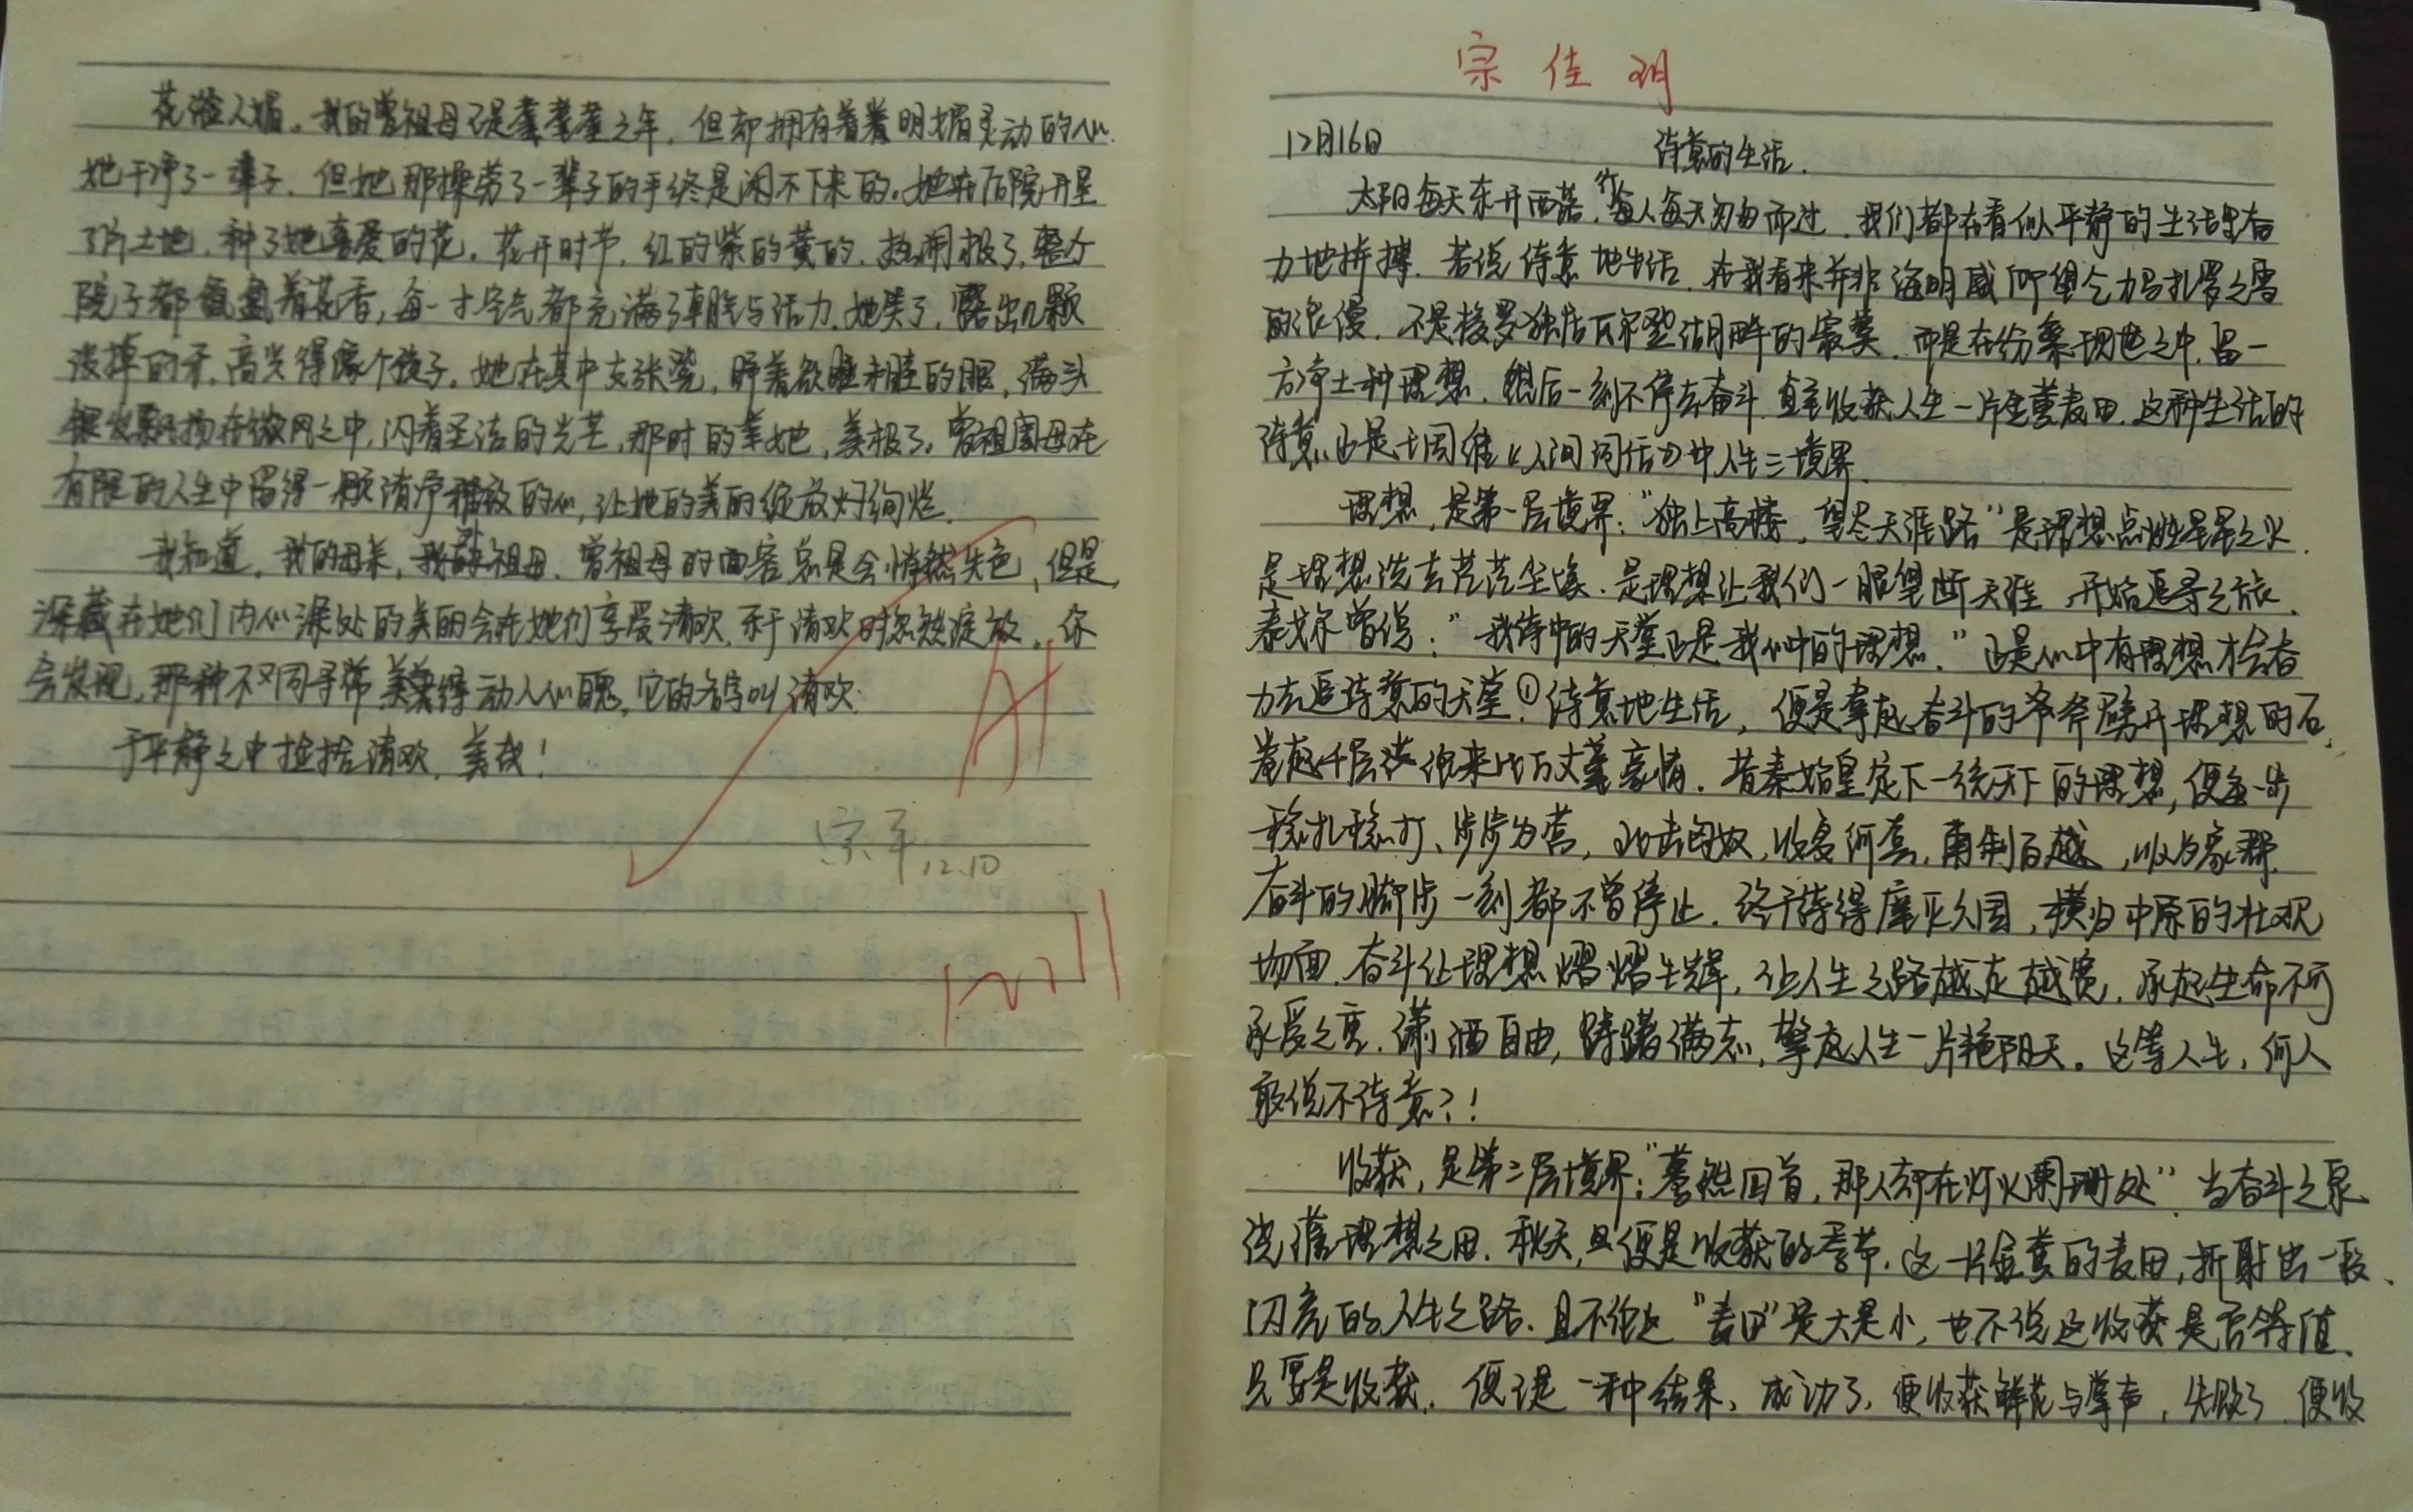 花谢人媚。我的曾祖母已是耄耋之年，但却拥有着着明媚灵动的心.
她干净了一辈子，但她那操劳了一辈子的手终是闲不下来的。她在后院开垦
了片土地，种了她喜爱的花。花开时节，红的紫的黄的，热闹极了，整个
院子都氤氲着花香，每一寸空气都充满了朝气与活力。她笑了，露出几颗
没掉的牙，高兴得像个孩子。她在其中支张凳，眯着欲睡的眼，满头
银发飘扬在微风之中，闪着圣洁的光芒，那时的她，美极了。曾祖母在
有限的人生中留得一颗清净的心，让她的美丽绽放灼绚烂.
我知道，我的母亲，我的外祖母、曾祖母的面容总是会悄然失色，但是，
深藏在她们内心深处的美丽会在她们享受清欢，乐于清欢时忽然绽放。你
会发现，那种不同寻常美得动人心魄，它的名字叫清欢.
于平静之中捡拾清欢，美哉！
宗平 12.10
A+
12.11
宗佳玥
12月16日 诗意的生活.
太阳每天东升西落，行人每天匆匆而过，我们都在看似平静的生活里奋
力地拼搏，若说诗意地生活，在我看来并非海明威仰望乞力马扎罗之雪
的浪漫，不是梭罗独居瓦尔登湖畔的寂寞，而是在纷繁现世之中，留一
方净土种理想，然后一刻不停去奋斗，直至收获人生一片金黄麦田，这种生活的
诗意，正是王国维《人间词话》中人生三境界.
理想，是第一层境界："独上高楼，望尽天涯路"是理想点燃星星之火，
是理想洗去茫茫尘埃，是理想让我们一眼望断天涯，开始追寻之旅.
泰戈尔曾说："我诗中的天堂正是我心中的理想."正是心中有理想才会奋
力去追诗意的天堂！①诗意地生活，便是拿起奋斗的斧劈开理想的石，
卷起千层浪，迎来比万丈豪情。昔秦始皇定下一统天下的理想，便每一步
稳扎稳打、步步为营，北击匈奴，收复河套，南制百越，以为象郡.
奋斗的脚步一刻都不曾停止，终于待得席灭六国，横扫中原的壮观
场面，奋斗让理想熠熠生辉，让人生之路越走越宽，承起生命不可
承受之重，潇洒自由，踌躇满志，擎起人生一片艳阳天。这等人生，何人
敢说不诗意？！
收获，是第三层境界："蓦然回首，那人却在灯火阑珊处"，当奋斗之泉
浇灌理想之田，秋天，便是收获的季节，这一片金黄的麦田，折射出一段
闪亮的人生之路，且不论这"麦田"是大是小，也不说这收获是否等值，
只要是收获，便是一种结果，成功了，便收获鲜花与掌声，失败了，便收